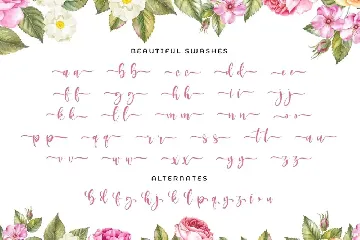 BEAUTIFUL SWASHES
a a b b c c d d e e
f f g g h h i i j j
k k l l m m n n o o
p p q q r r s s t t u u
v v w w x x y y z z
ALTERNATES